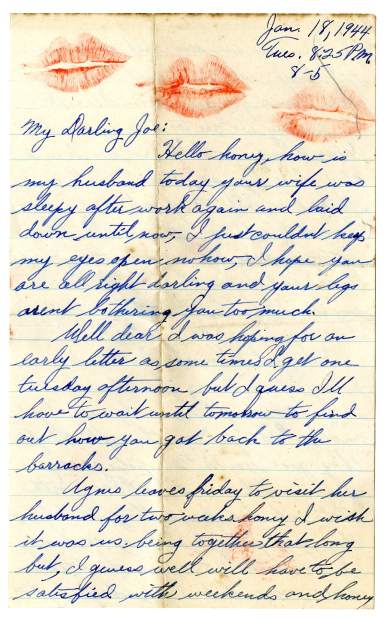 Jan. 18, 1944
Tues. 8:25 P.M.
8-5
My Darling Joe:
Hello honey, how is
my husband today your wife was
sleepy after work again and laid
down until now, I just couldnt keep
my eyes open nohow, I hope you
are all right darling and your legs
arent bothering you too much.
Well dear I was hoping for an
early letter as some times I get one
tuesday afternoon but I guess I'll
have to wait until tomorrow to find
out how you got back to the
barracks.
Agnes leaves friday to visit her
husband for two weeks honey I wish
it was us being together that long
but, I guess well will have to be
satisfied with weekends and honey